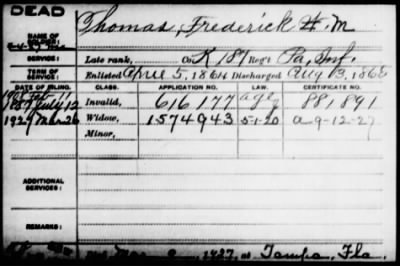 DEAD
NAME OF SOLDIER: Thomas, Frederick H. M
SERVICE: Late rank, Co K 187 Reg't Pa, Inf.
TERM OF SERVICE: Enlisted 5, 1864 Discharged Aug 1865
DATE OF FILING. CLASS. APPLICATION NO. LAW. CERTIFICATE NO.
July 12 Invalid, 616,177 age 881,891
1927 Mar 26 Widow, 1574943 5-1-20 a 9-12-27
Minor,
ADDITIONAL SERVICES:
REMARKS:
1927, at Tampa, Fla.